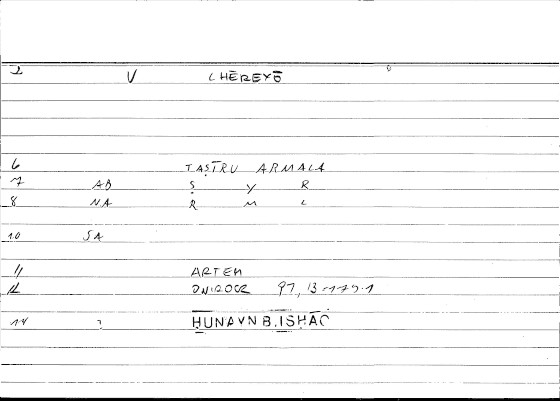 2 V LHĒREYŌ
6 TAṢTRU ARMALA
7 AB Ṣ Y R
8 NA R M L
10 SA
11 ARTEM
12 ONIROCR 97, 13
14 ? ḤUNAYN B. ISḤĀQ